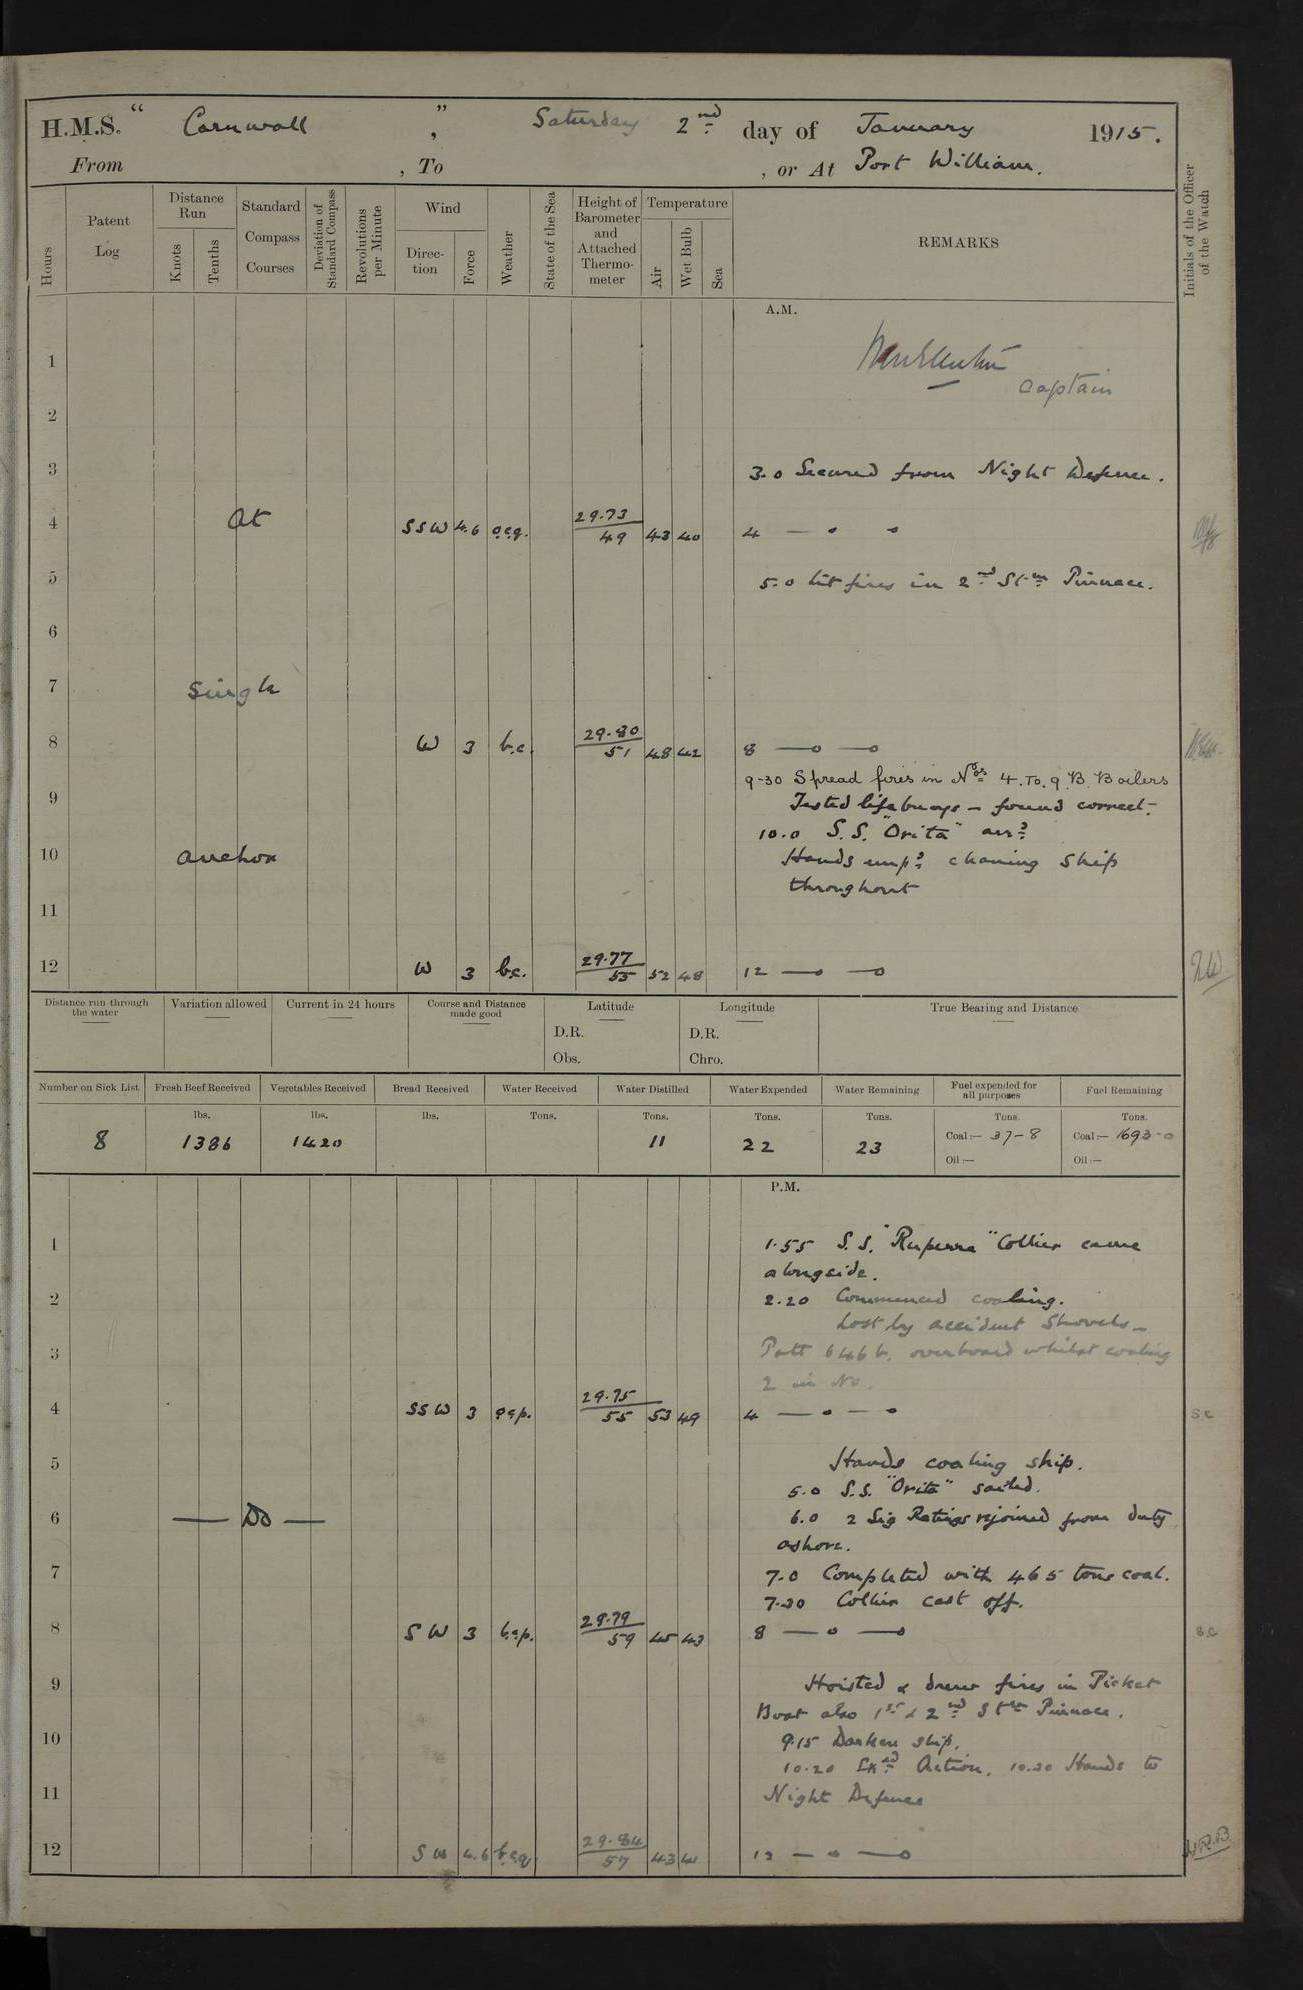 H.M.S. “ Cornwall ” , Saturday 2nd day of January 1915.
From , To , or At Port William.
Hours
Patent Log
Distance Run
Knots
Tenths
Standard Compass Courses
Deviation of Standard Compass
Revolutions per Minute
Wind
Direction
Force
Weather
State of the Sea
Height of Barometer and Attached Thermometer
Temperature
Air
Wet Bulb
Sea
REMARKS
Initials of the Officer of the Watch
A.M.
1
Captain
2
3 3.0 Secured from Night Defence.
4 At SSW 4.6 o.c.q. 29.73 49 43 40 4 — o o
5 5.0 Lit fires in 2nd Stm Pinnace.
6
7 Single
8 W 3 b.c. 29.80 51 48 42 8 —o —o
9.30 Spread fires in Nos 4. To. 9 B. Boilers
9 Tested lifebuoys – found correct.
10.0 S.S. "Orita" arrd
10 anchor Hands empd cleaning ship
throughout
11
12 W 3 bc. 29.77 55 52 48 12 —o —o
Distance run through the water
Variation allowed
Current in 24 hours
Course and Distance made good
Latitude
D.R.
Obs.
Longitude
D.R.
Chro.
True Bearing and Distance
Number on Sick List
Fresh Beef Received
Vegetables Received
Bread Received
Water Received
Water Distilled
Water Expended
Water Remaining
Fuel expended for all purposes
Fuel Remaining
lbs. lbs. lbs. Tons. Tons. Tons. Tons. Tons. Tons.
8 1386 1420 11 22 23 Coal:— 37-8 Coal:— 1693-0
Oil:— Oil:—
P.M.
1 1.55 S.S. "Ruperra" Collier came
alongside.
2 2.20 Commenced coaling.
Lost by accident Shovels –
3 Patt 6466. overboard whilst coaling
2 in No.
4 SSW 3 o.c.p. 29.75 55 53 49 4 — o — o S.C
5 Hands coaling ship.
5.0 S.S. "Orita" sailed.
6 — Do — 6.0 2 Sig Ratings rejoined from duty
ashore.
7 7.0 Completed with 465 tons coal.
7.30 Collier cast off.
8 SW 3 b.c.p. 29.79 59 45 43 8 — o —o S.C
9 Hoisted & drew fires in Picket
Boat also 1st & 2nd Stm Pinnace.
10 9.15 Darken ship.
10.20 Exed Action. 10.30 Hands to
11 Night Defence
12 SW 4.6 b.c.q 29.84 57 43 41 12 — o —o